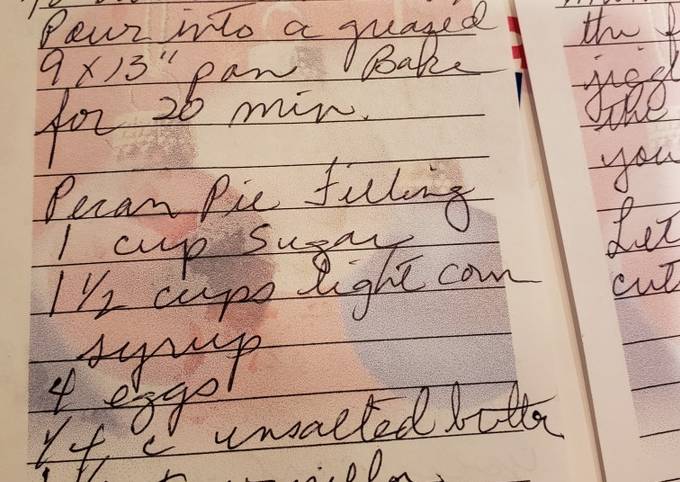 Pour into a greased
9 x 13" pan Bake
for 20 min.
Pecan Pie Filling
1 cup Sugar
1 1/2 cups light corn
syrup
4 eggs
1/4 c unsalted butter
the
jiggl
the
you
Let
cut